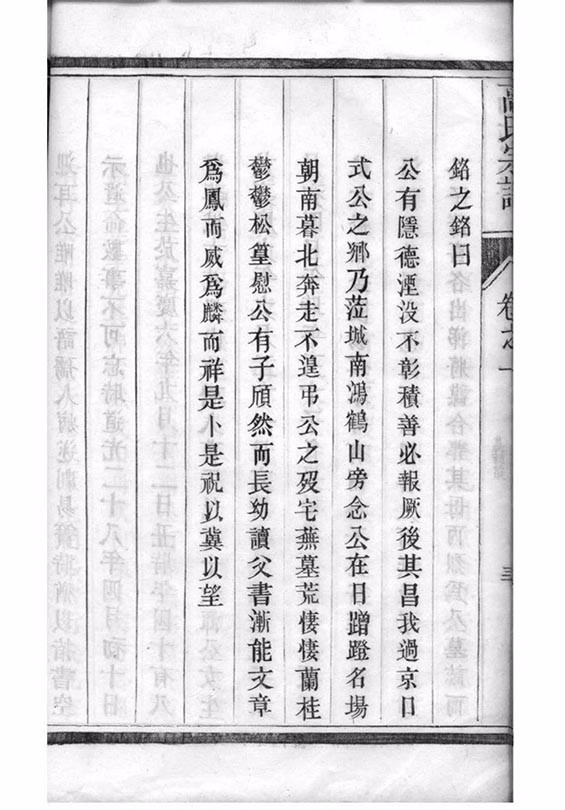 高氏宗譜
卷之一
三
銘之銘曰
公有隱德湮没不彰積善必報厥後其昌我過京口
式公之鄉乃蒞城南鴻鶴山旁念公在日蹭蹬名場
朝南暮北奔走不遑弔公之歿宅蕪墓荒悽悽蘭桂
鬱鬱松篁慰公有子頎然而長幼讀父書漸能文章
爲鳳而威爲麟而祥是卜是祝以冀以望